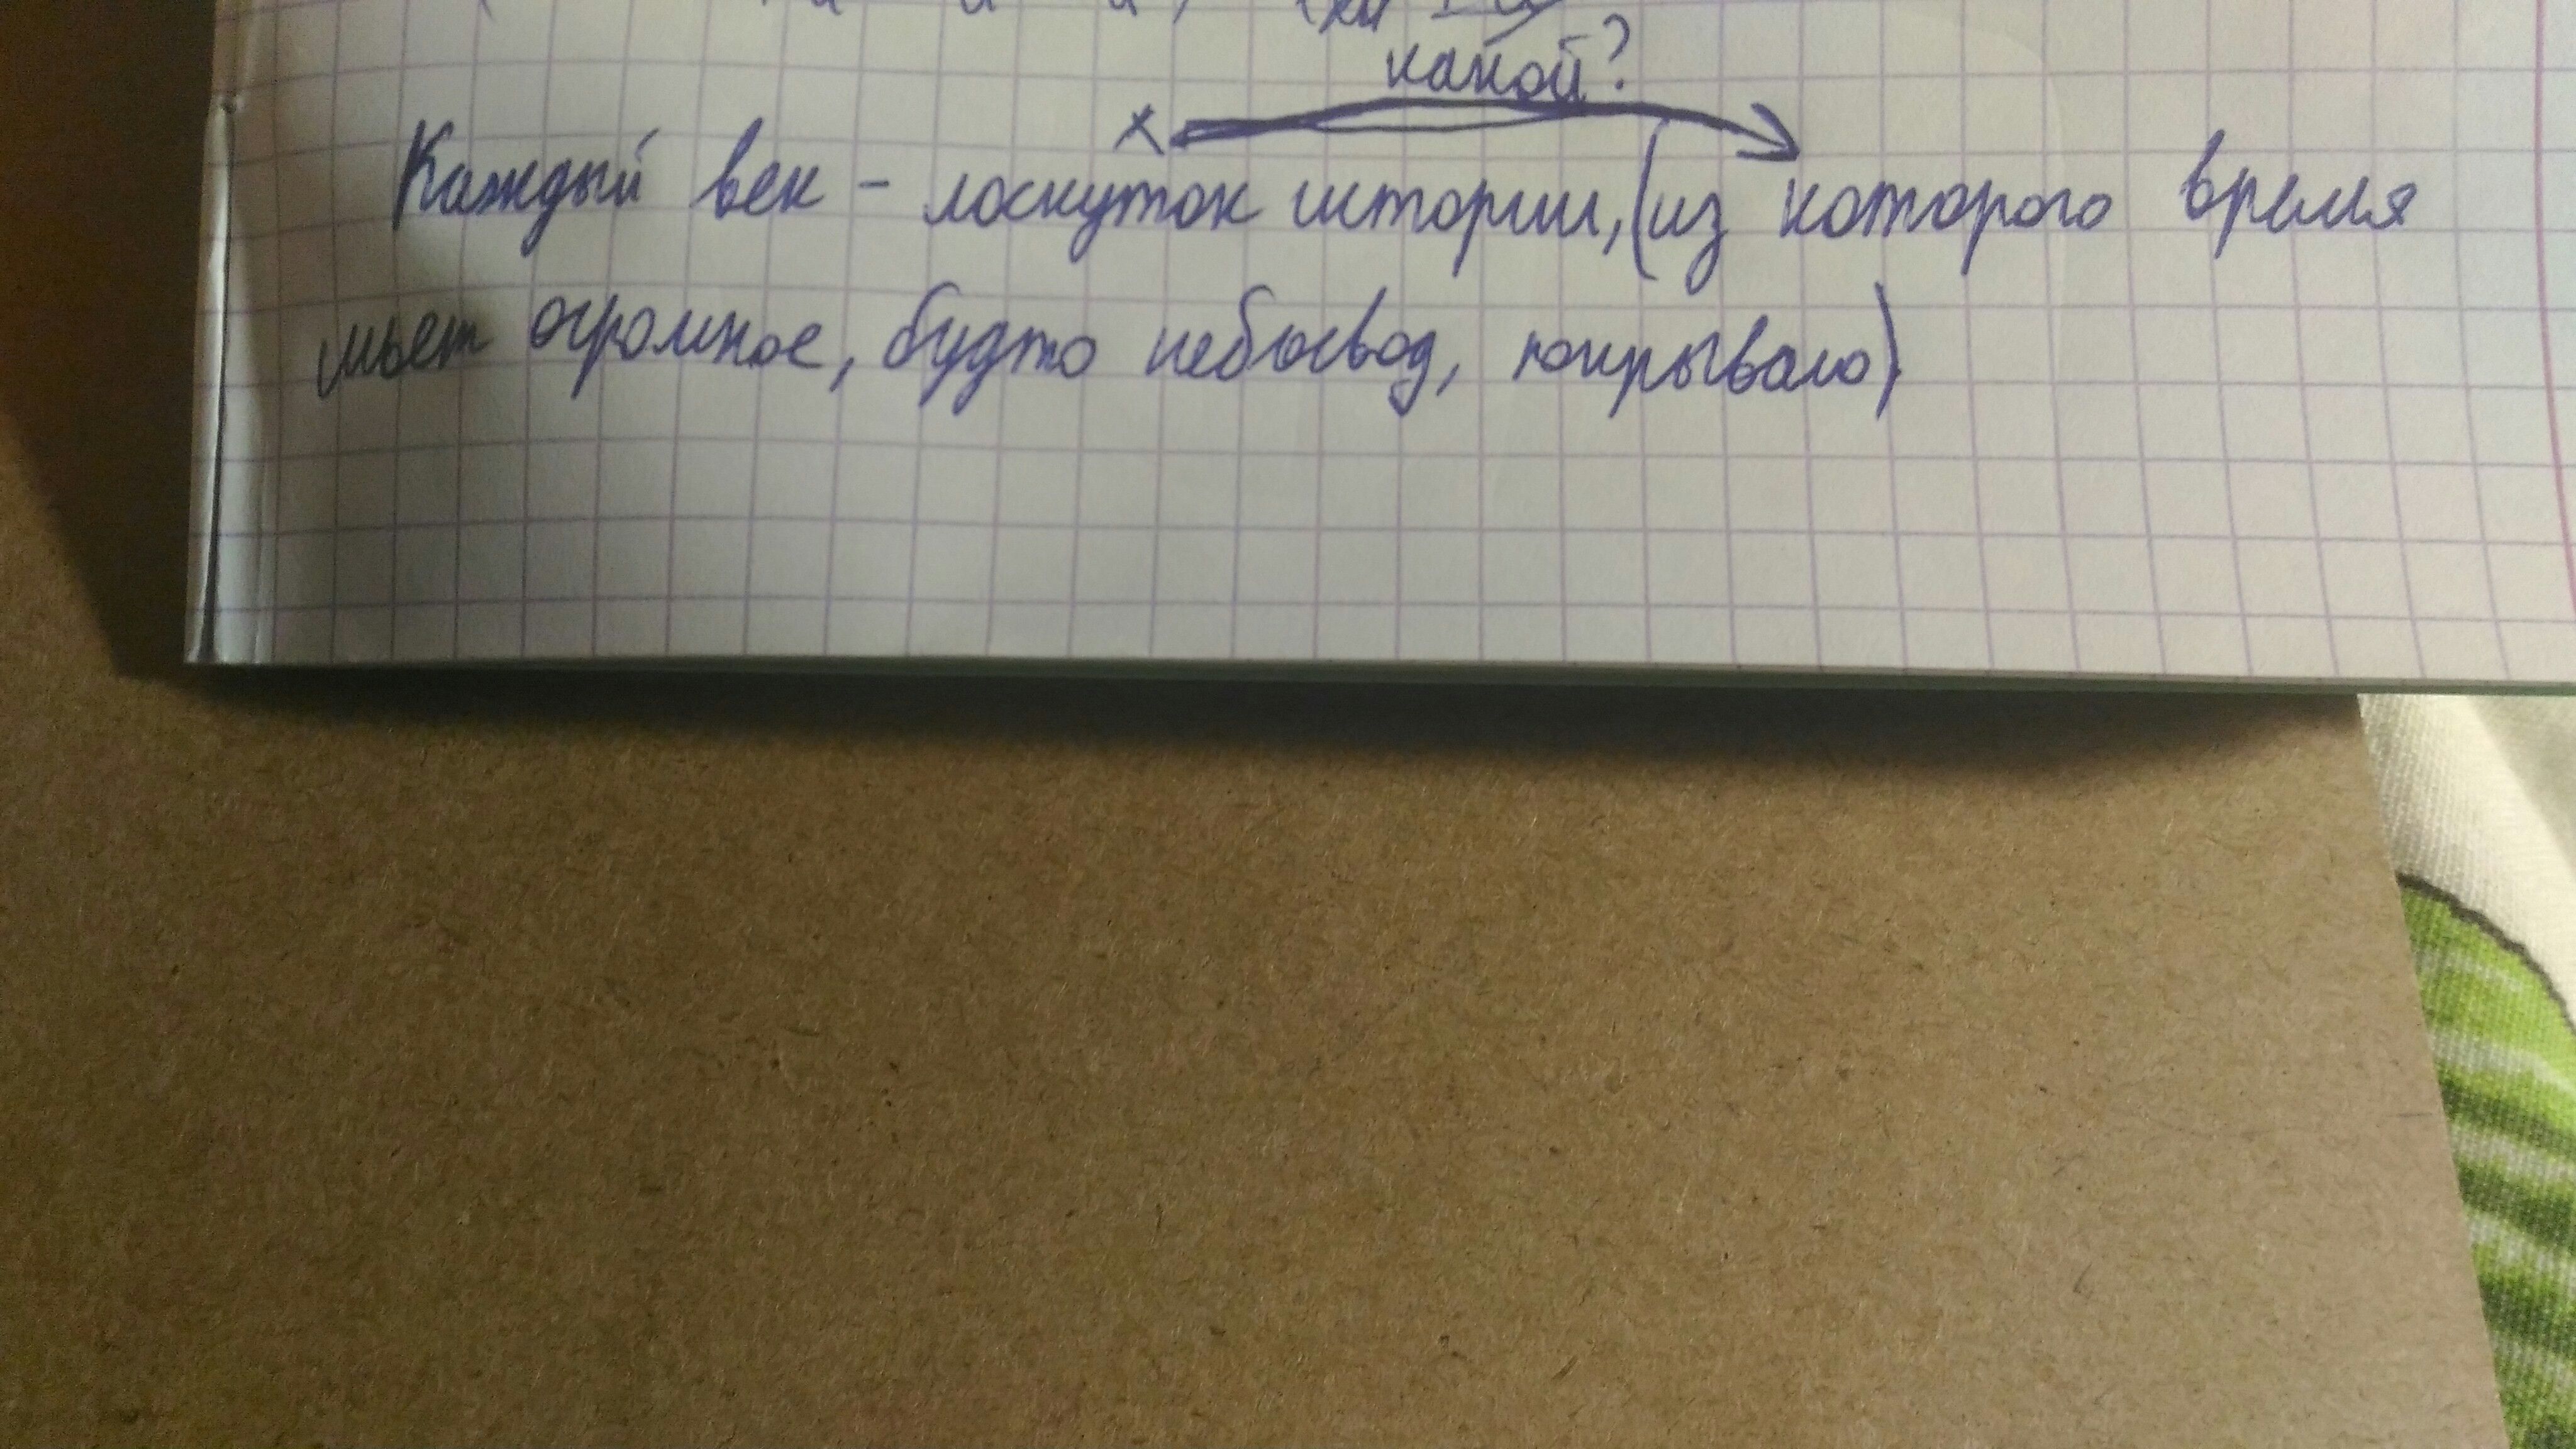 какой?
х
Каждый век - лоскуток истории, (из которого время
шьет огромное, будто небосвод, покрывало)